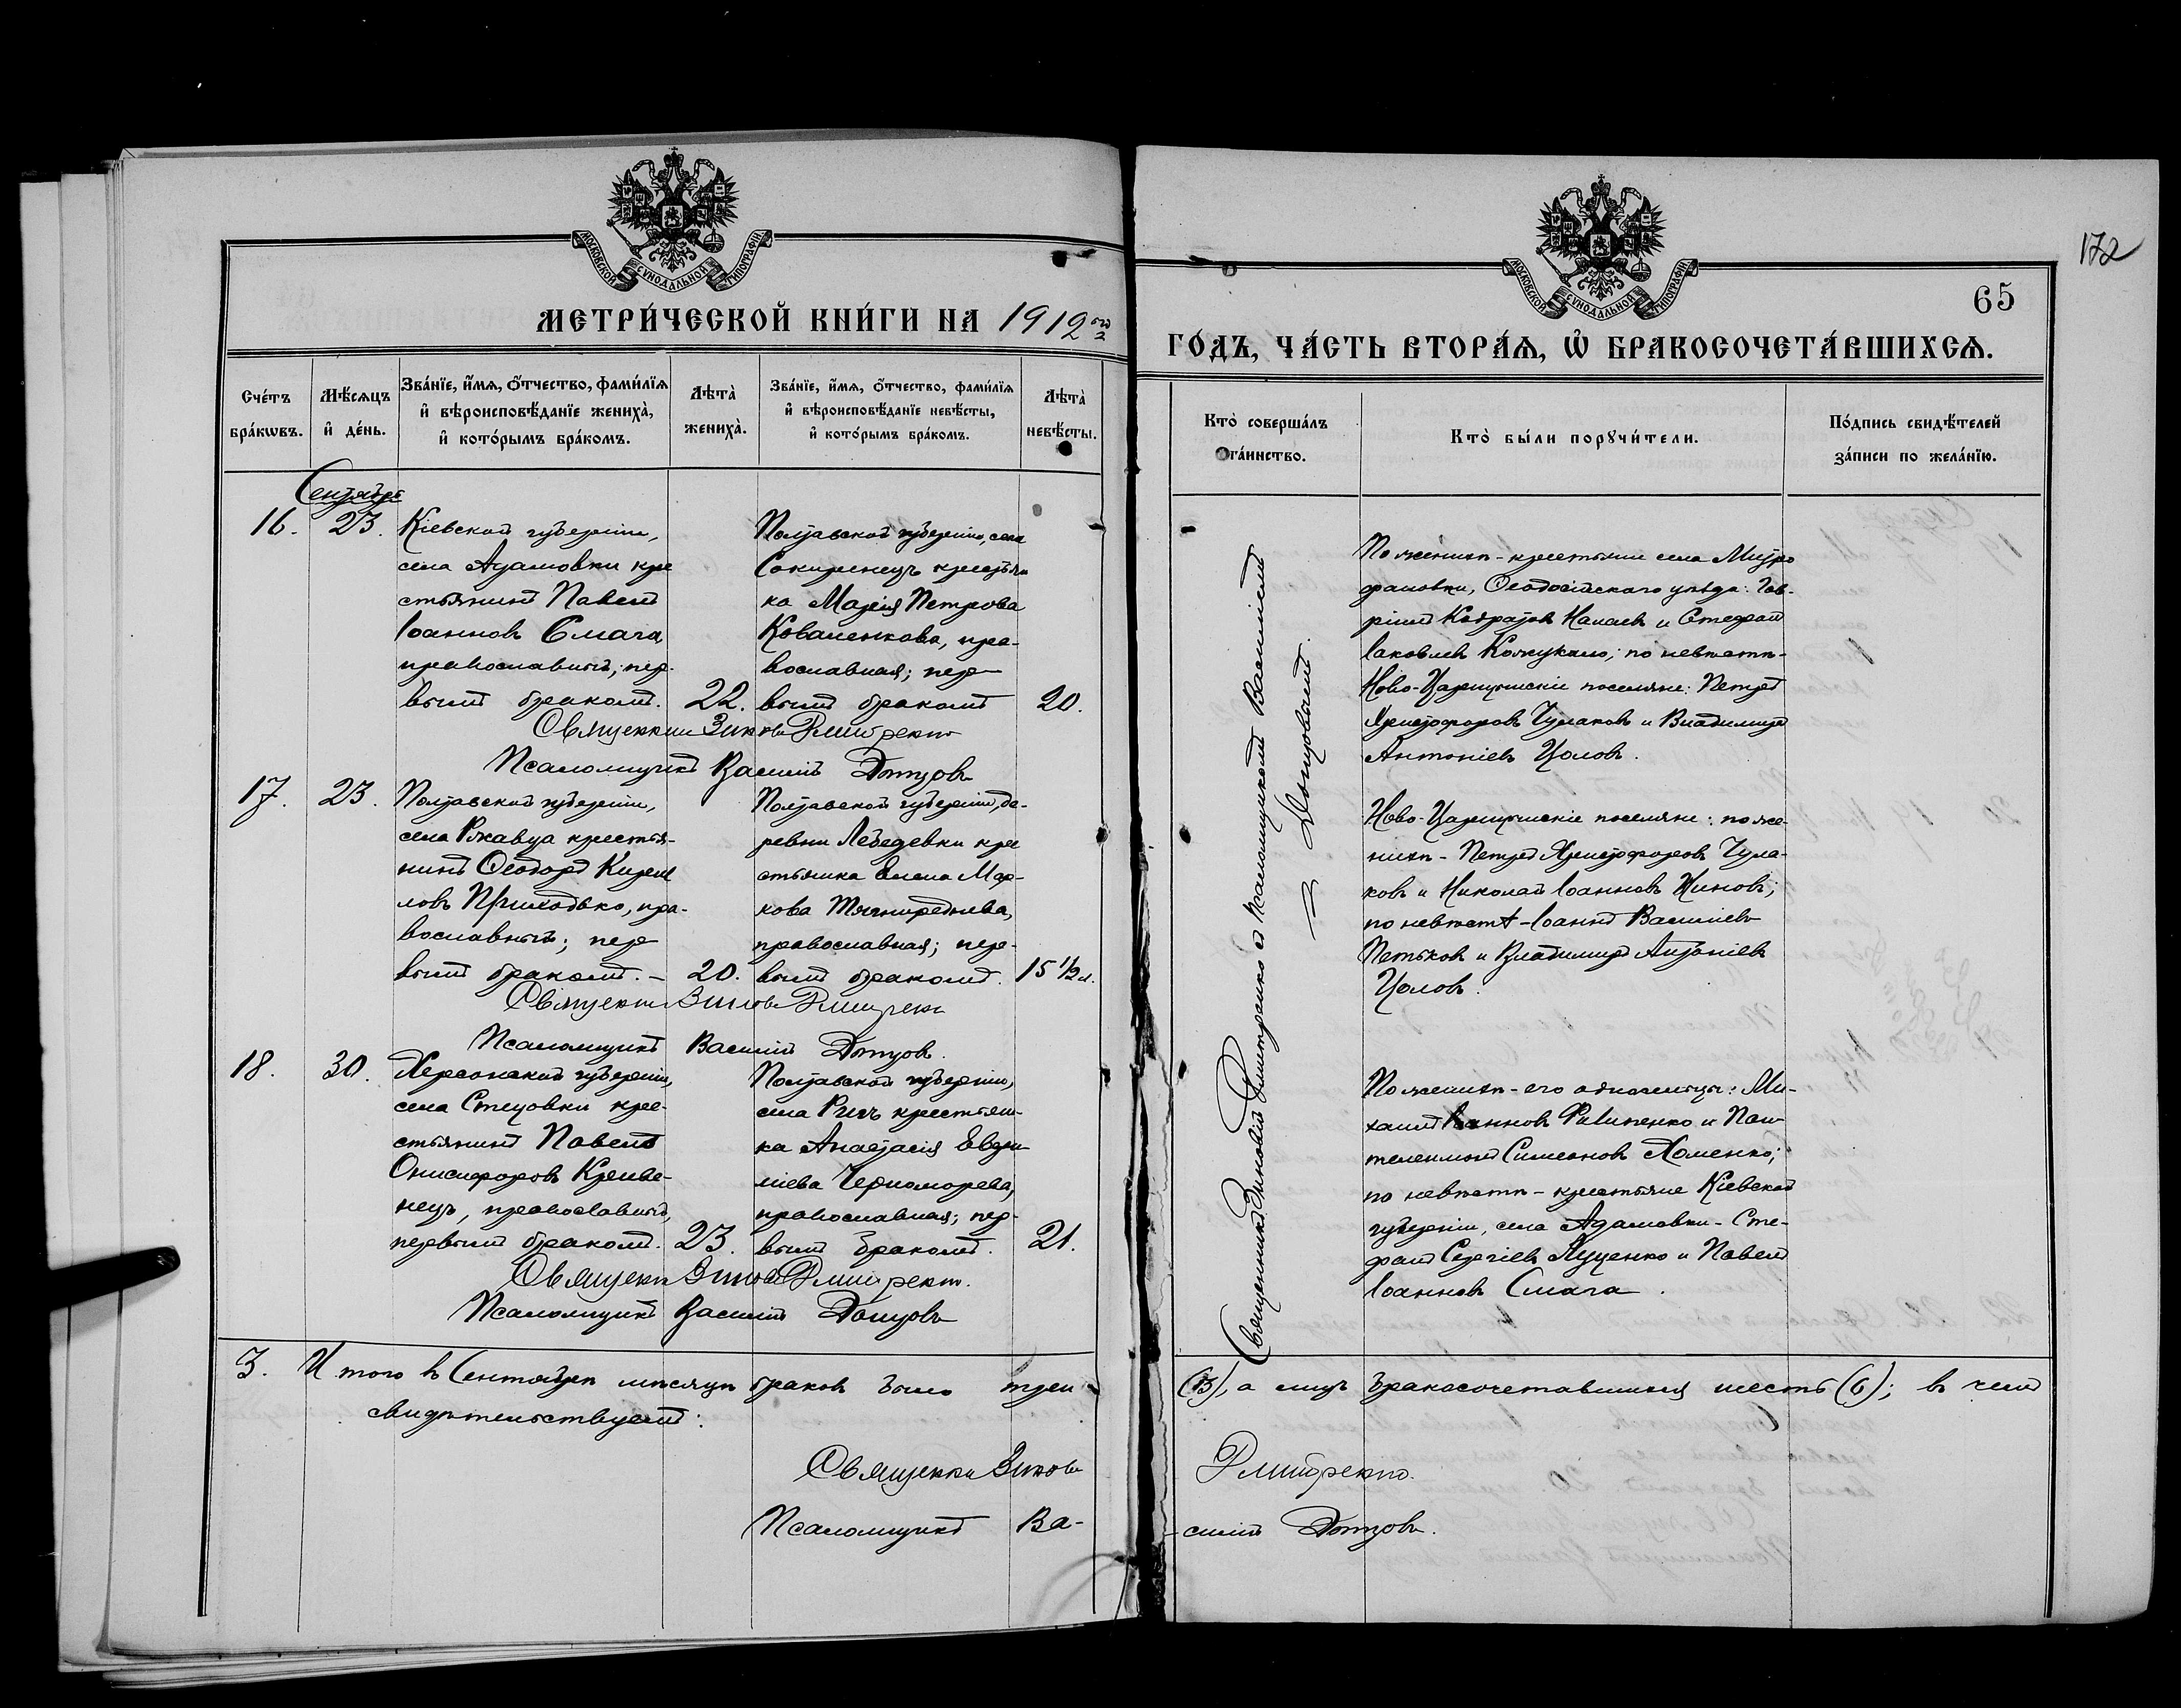 МОСКОВСКОЙ СѴНОДАЛЬНОЙ ТИПОГРАФІИ
МЕТРИ́ЧЕСКОЙ КНИ́ГИ НА 1912ого
Сче́тъ бра́кѡвъ.
Мѣ́сяцъ и҆ де́нь.
Зва́нїе, и҆́мѧ, ѻ҆́тчество, фами́лїѧ и҆ вѣроисповѣ́данїе жениха̀, и҆ кото́рымъ бра́комъ.
Лѣта̀ жениха̀.
Зва́нїе, и҆́мѧ, ѻ҆́тчество, фами́лїѧ и҆ вѣроисповѣ́данїе невѣ́сты, и҆ кото́рымъ бра́комъ.
Лѣта̀ невѣ́сты.
Сентябрь
16. 23.
Кіевской губерніи,
села Адамовки кре
стьянинъ Павелъ
Іоанновъ Смага,
православный; пер-
вымъ бракомъ. 22.
Полтавской губерніи, села
Сокиренецъ крестьян
ка Марія Петрова
Коваленкова, пра-
вославная; пер
вымъ бракомъ 20.
Священник Зиновій Дмитренко
Псаломщикъ Василій Донцовъ
17. 23.
Полтавской губерніи,
села Ржавца крестья-
нинъ Ѳеодоръ Кирил
ловъ Приходько, пра-
вославный; пер
вымъ бракомъ. - 20.
Полтавской губерніи, де-
ревни Лебедевки кре
стьянка Елена Мар-
кова
православная; пер-
вымъ бракомъ. 15 1/2 л.
Священник Зиновій Дмитренко
Псаломщикъ Василій Донцовъ.
18. 30.
Херсонской губерніи,
села Стецовки кре-
стьянинъ Павелъ
Онисифоровъ Креиве-
нецъ, православный,
первымъ бракомъ. 23.
Полтавской губерніи,
села Ригъ крестьян-
ка Анастасія Евфи
міева Черноморева,
православная; пер-
вымъ бракомъ. 21.
Священник Зиновій Дмитренко.
Псаломщикъ Василій Донцовъ
3. Итого въ Сентябрѣ мѣсяцѣ браковъ было три
свидѣтельствуемъ:
Священник Зиновій
Псаломщикъ Ва-
172
65
МОСКОВСКОЙ СѴНОДАЛЬНОЙ ТИПОГРАФІИ
ГО́ДЪ, ЧА́СТЬ ВТОРА́Ѧ, Ѽ БРАКОСОЧЕТА́ВШИХСѦ.
Кто̀ соверша́лъ та́инство.
Кто̀ бы́ли порꙋчи́тели.
По́дпись свидѣ́телей за́писи по жела́нїю.
Священникъ Зиновій Дмитренко съ псаломщикомъ Василіемъ
Донцовымъ.
По женихѣ - крестьяне села Митро
фановки, Ѳеодосійскаго уѣзда: Гав-
ріилъ Кодратовъ Капаевъ и Стефанъ
Іаковлевъ Кожукало; по невѣстѣ-
Ново-Царицынскіе поселяне: Петръ
Христофоровъ Чумаковъ и Владимиръ
Антоніевъ Цоловъ.
Ново-Царицынскіе поселяне: по же-
нихѣ - Петръ Христофоровъ Чума-
ковъ и Николай Іоанновъ Киновъ;
по невѣстѣ - Іоаннъ Василіевъ
Петьковъ и Владимиръ Антоніевъ
Цоловъ.
По женихѣ - его односельцы: Ми-
хаилъ Іоанновъ Филипенко и Пан
телеимонъ Симеоновъ Хоменко;
по невѣстѣ - крестьяне Кіевской
губерніи, села Адамовки - Сте-
фанъ Сергіевъ Луценко и Павелъ
Іоанновъ Смага.
(3), а лицъ бракосочетавшихся шесть (6); въ чемъ
Дмитренко.
-силій Донцовъ.